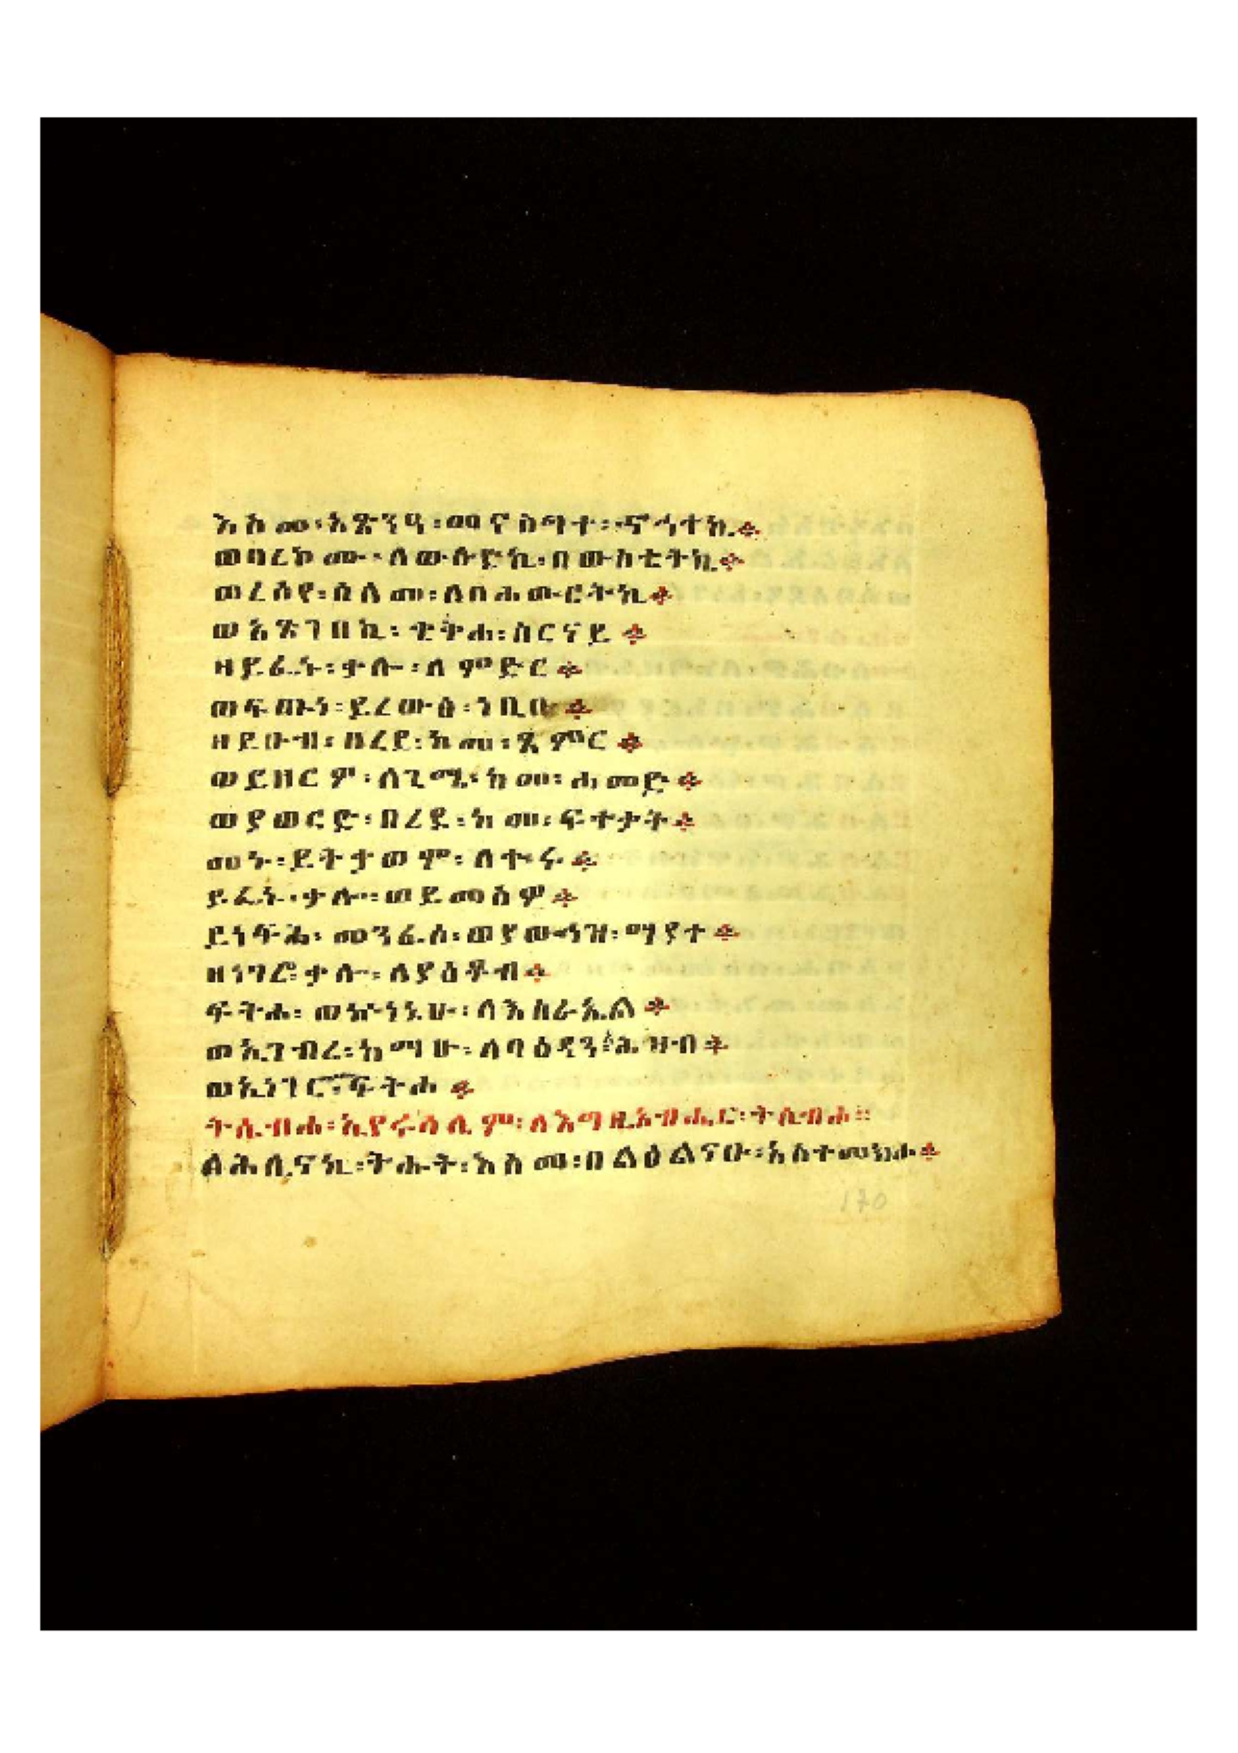 እስመ፡አጽንዓ፡መናስግተ፡ኆኅተኪ።
ወባረኮሙ፡ለውሉድኪ፡በውስቴትኪ።
ወረሰየ፡ሰላመ፡ለበሐውርትኪ።
ወአጽገበኪ፡ቄቅሐ፡ስርናይ።
ዘይፌኑ፡ቃሎ፡ለምድር።
ወፍጡነ፡ይረውፅ፡ነቢቡ።
ዘይሁብ፡በረደ፡ከመ፡ፀምር።
ወይዘርዎ፡ለጊሜ፡ከመ፡ሐመድ።
ወያወርድ፡በረደ፡ከመ፡ፍተታት።
መኑ፡ይትቃወሞ፡ለቍሩ።
ይፌኑ፡ቃሎ፡ወይመስዎ።
ይነፍሕ፡መንፈሰ፡ወያውኅዝ፡ማያተ።
ዘነገሮ፡ቃሎ፡ለያዕቆብ።
ፍትሐ፡ወኵነኔሁ፡ለእስራኤል።
ወኢገብረ፡ከማሁ፡ለባዕዳን፡ሕዝብ።
ወኢነገሮሙ፡ፍትሐ።
ትሴብሐ፡ኢየሩሳሌም፡ለእግዚአብሔር፡ትሴብሐ፡፡